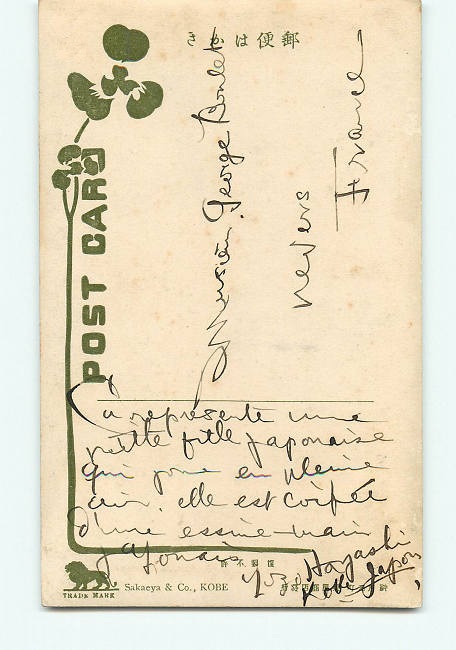 きかは便郵
POST CARD
Monsieur George
Nevers
France
Ça represente une
petite fille Japonaise
qui joue en pleine
air. elle est coifée
d'une essuie-main
Japonais
Hayashi
Kobe Japon
製複許不
TRADE MARK
Sakaeya & Co., KOBE